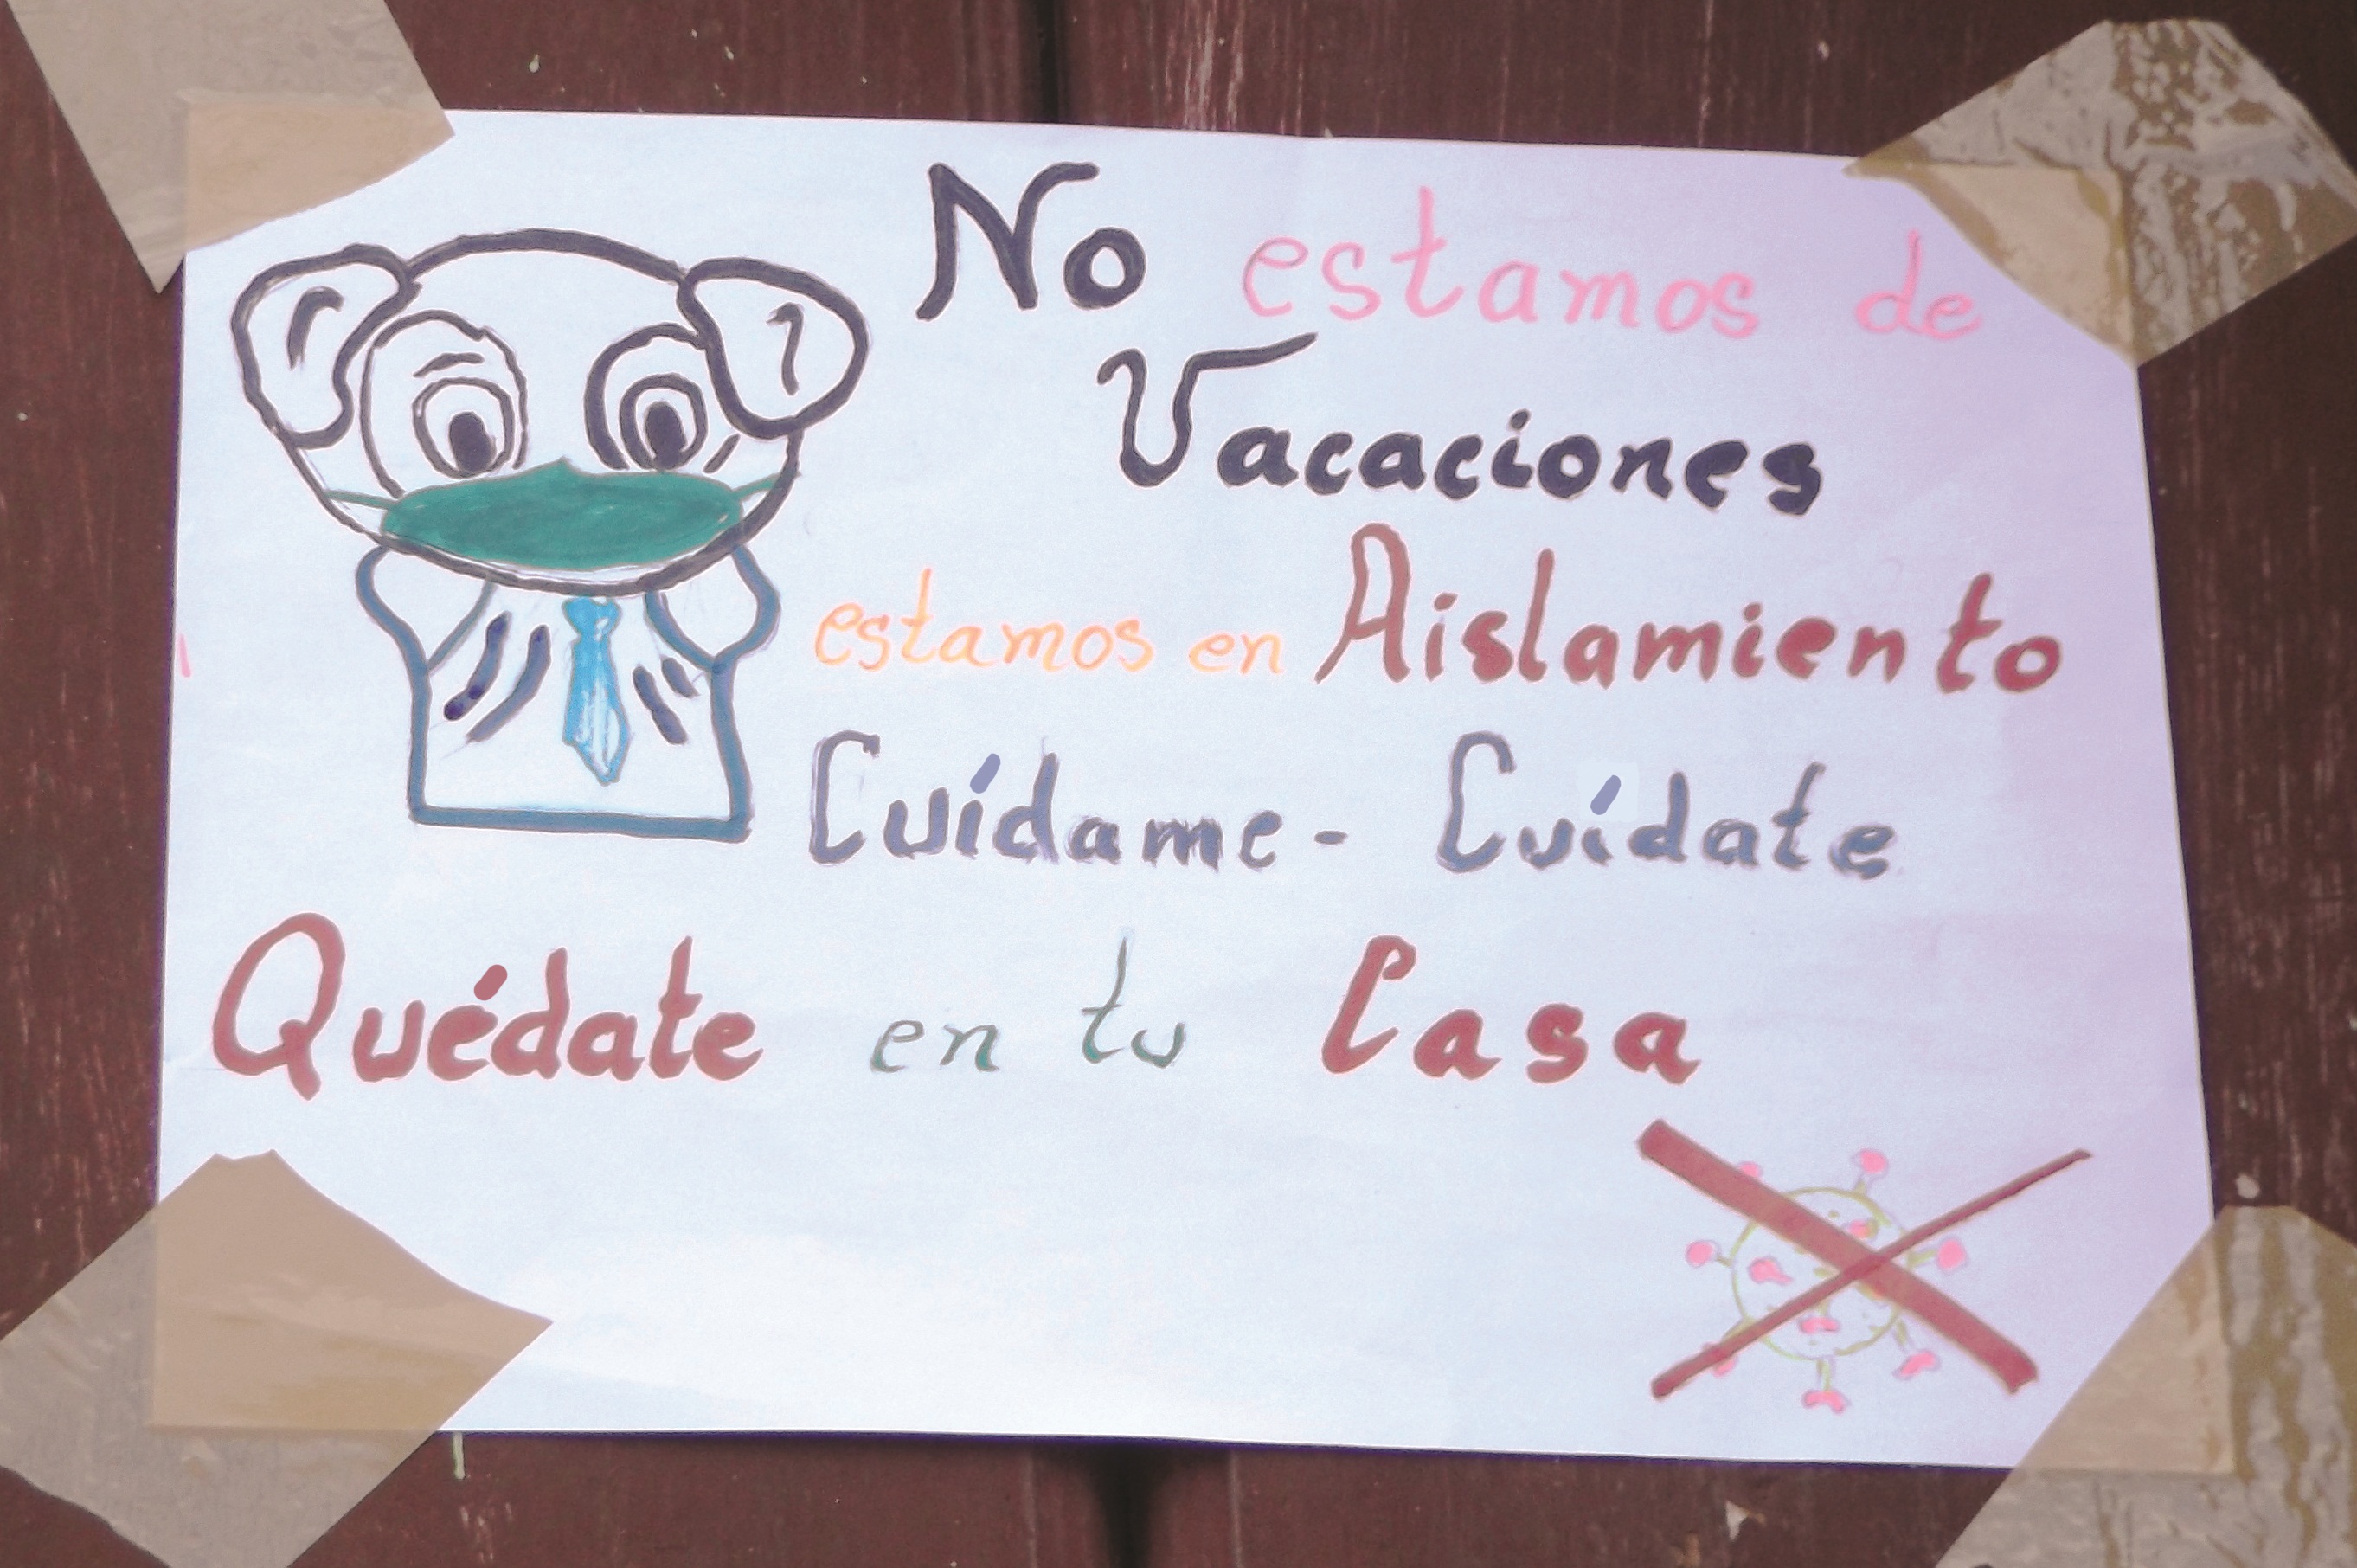 No estamos de
Vacaciones
estamos en Aislamiento
Cuídame - Cuídate
Quédate en tu Casa